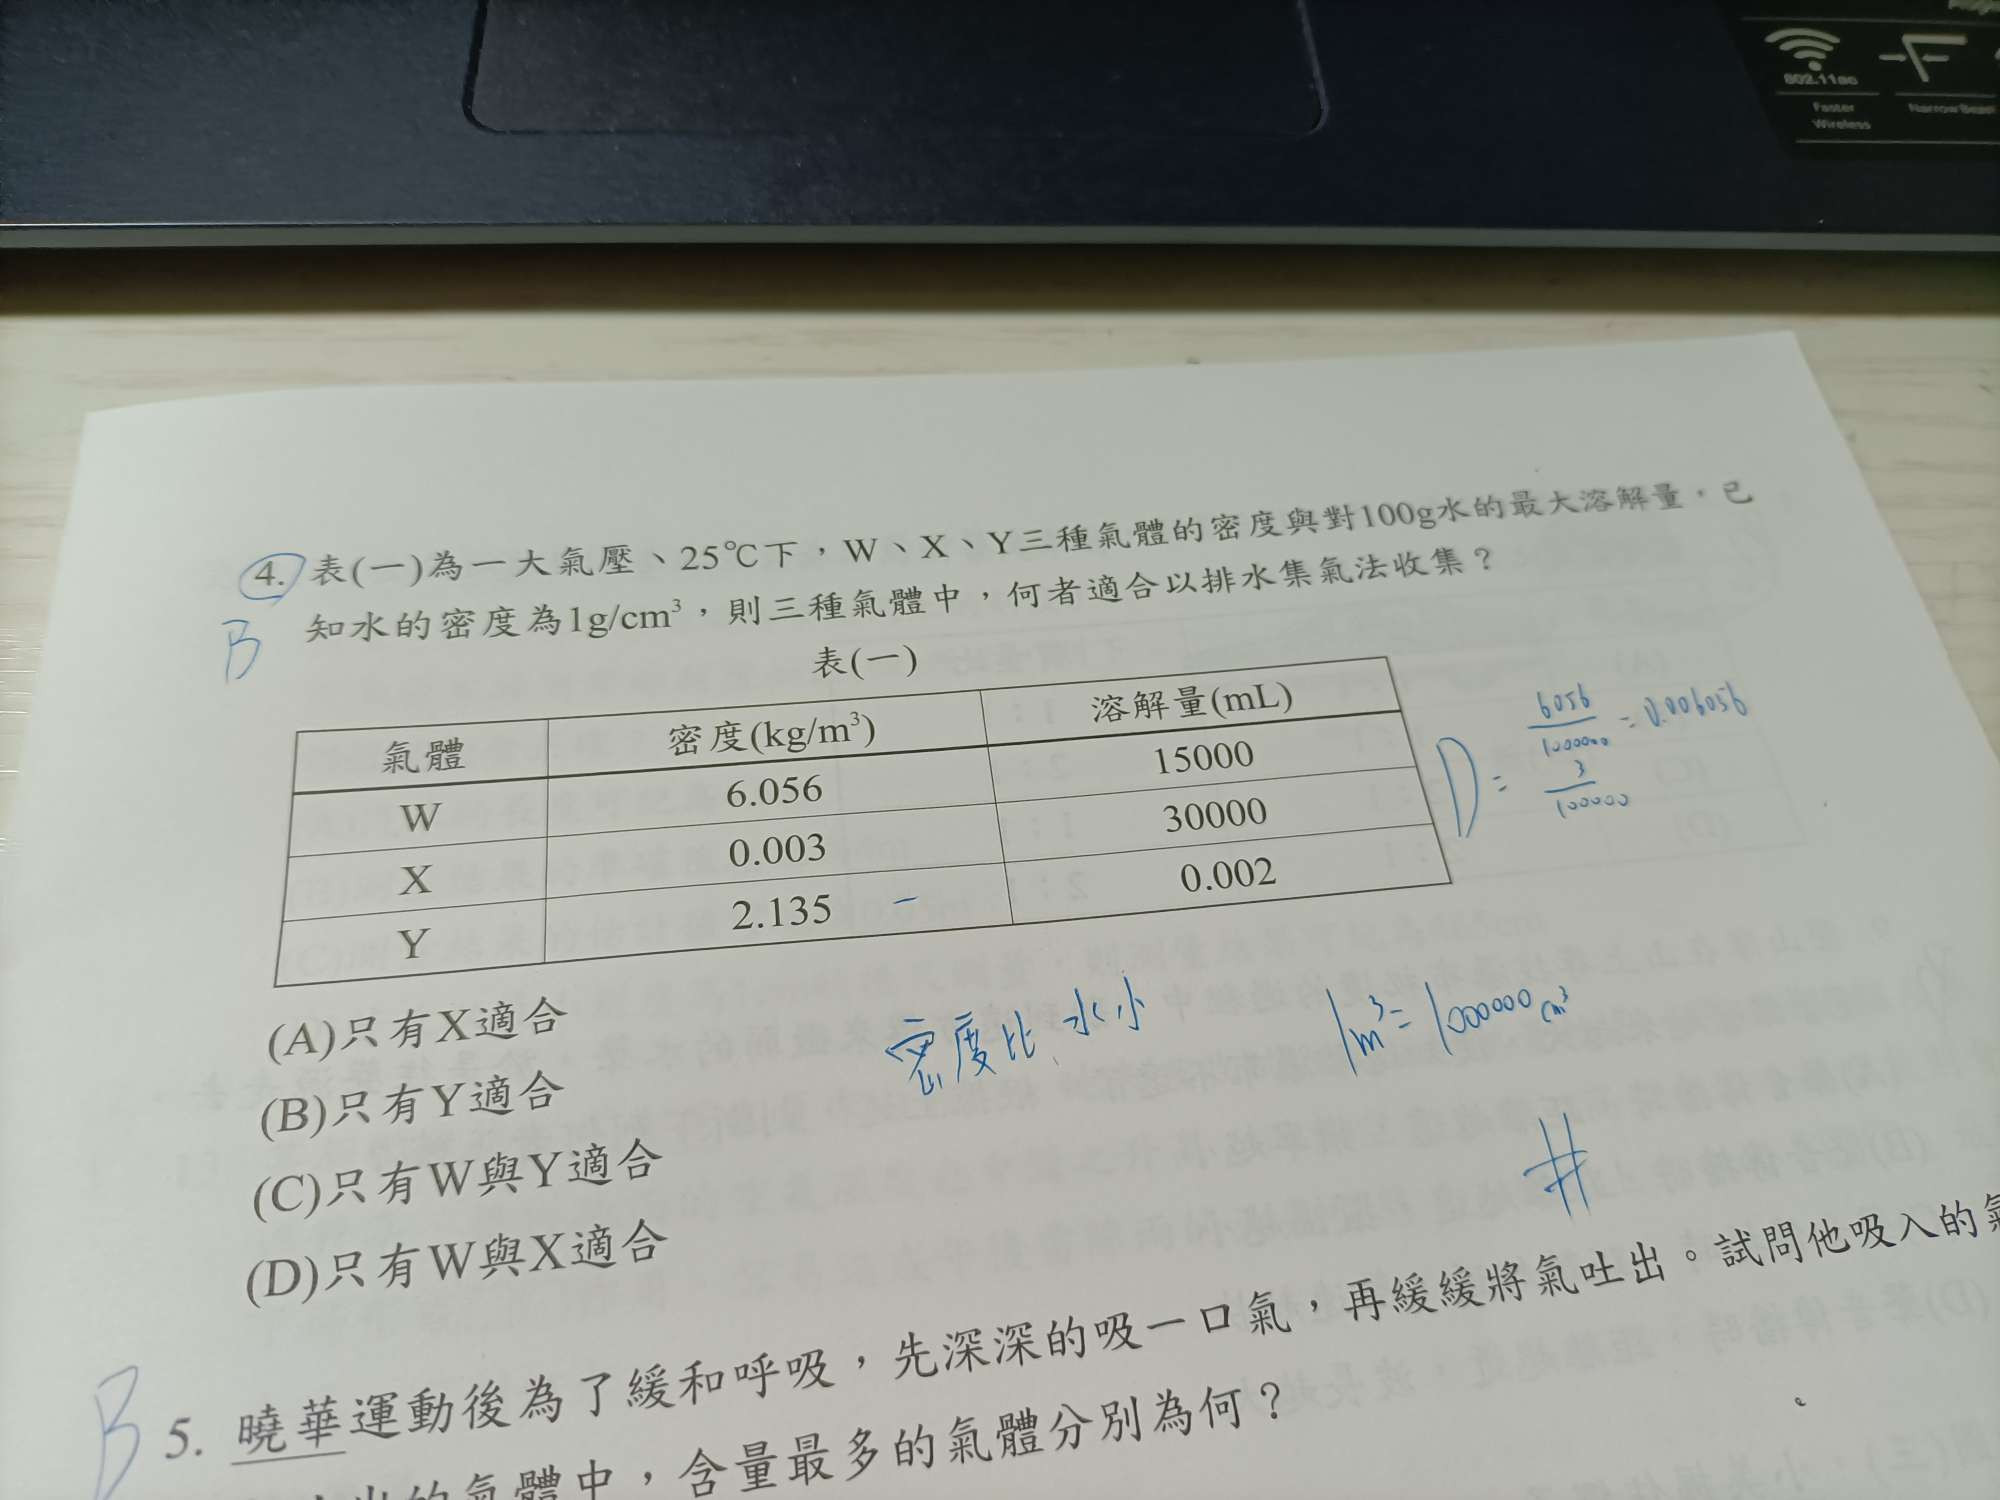 802.11ac
Faster
Wireless
4. 表(一)為一大氣壓、25℃下，W、X、Y三種氣體的密度與對100g水的最大溶解量，已
知水的密度為1g/cm³，則三種氣體中，何者適合以排水集氣法收集？
B
表(一)
氣體 密度(kg/m³) 溶解量(mL)
W 6.056 15000
X 0.003 30000
Y 2.135 0.002
D = 6056/1000000 = 0.006056
3/100000
(A)只有X適合
(B)只有Y適合
(C)只有W與Y適合
(D)只有W與X適合
密度比水小
1m³=1000000cm³
B
5. 曉華運動後為了緩和呼吸，先深深的吸一口氣，再緩緩將氣吐出。試問他吸入的氣
出的氣體中，含量最多的氣體分別為何？